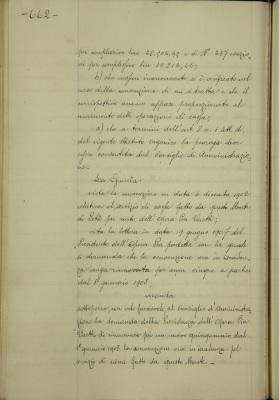 -662-
per complessive lire 25.902,99 e di N. 257 
si per complessive lire 20.212,46;
b) che nessun inconveniente si è verificato nel
corso della convenzione di cui si tratta e che il
corrispettivo annuo appare proporzionato al
movimento delle operazioni di cassa;
c) che a termini dell'art. 8 n. 1 lett. d.
del vigente Statuto organico la proroga deve
essere consentita dal Consiglio di Amministrazio
ne;
La Giunta:
vista la convenzione in data 6 dicembre 1902
relativa al servizio di cassa fatto da questo Monte
di Pietà per conto dell'Opera Pia
vista la lettera in data 19 giugno 1907 del
Presidente dell'Opera Pia predetta con la quale
si domanda che la convenzione ora in scaden
za venga rinnovata per anni cinque a partire
dal 1° gennaio 1908;
manda
sottoporre, con voto favorevole, al Consiglio d'Amministra
zione la domanda della Presidenza dell'Opera Pia
di rinnovare per un nuovo quinquennio dal
1° gennaio 1908 la convenzione ora in scadenza pel
servizio di cassa fatto da questo Monte.-